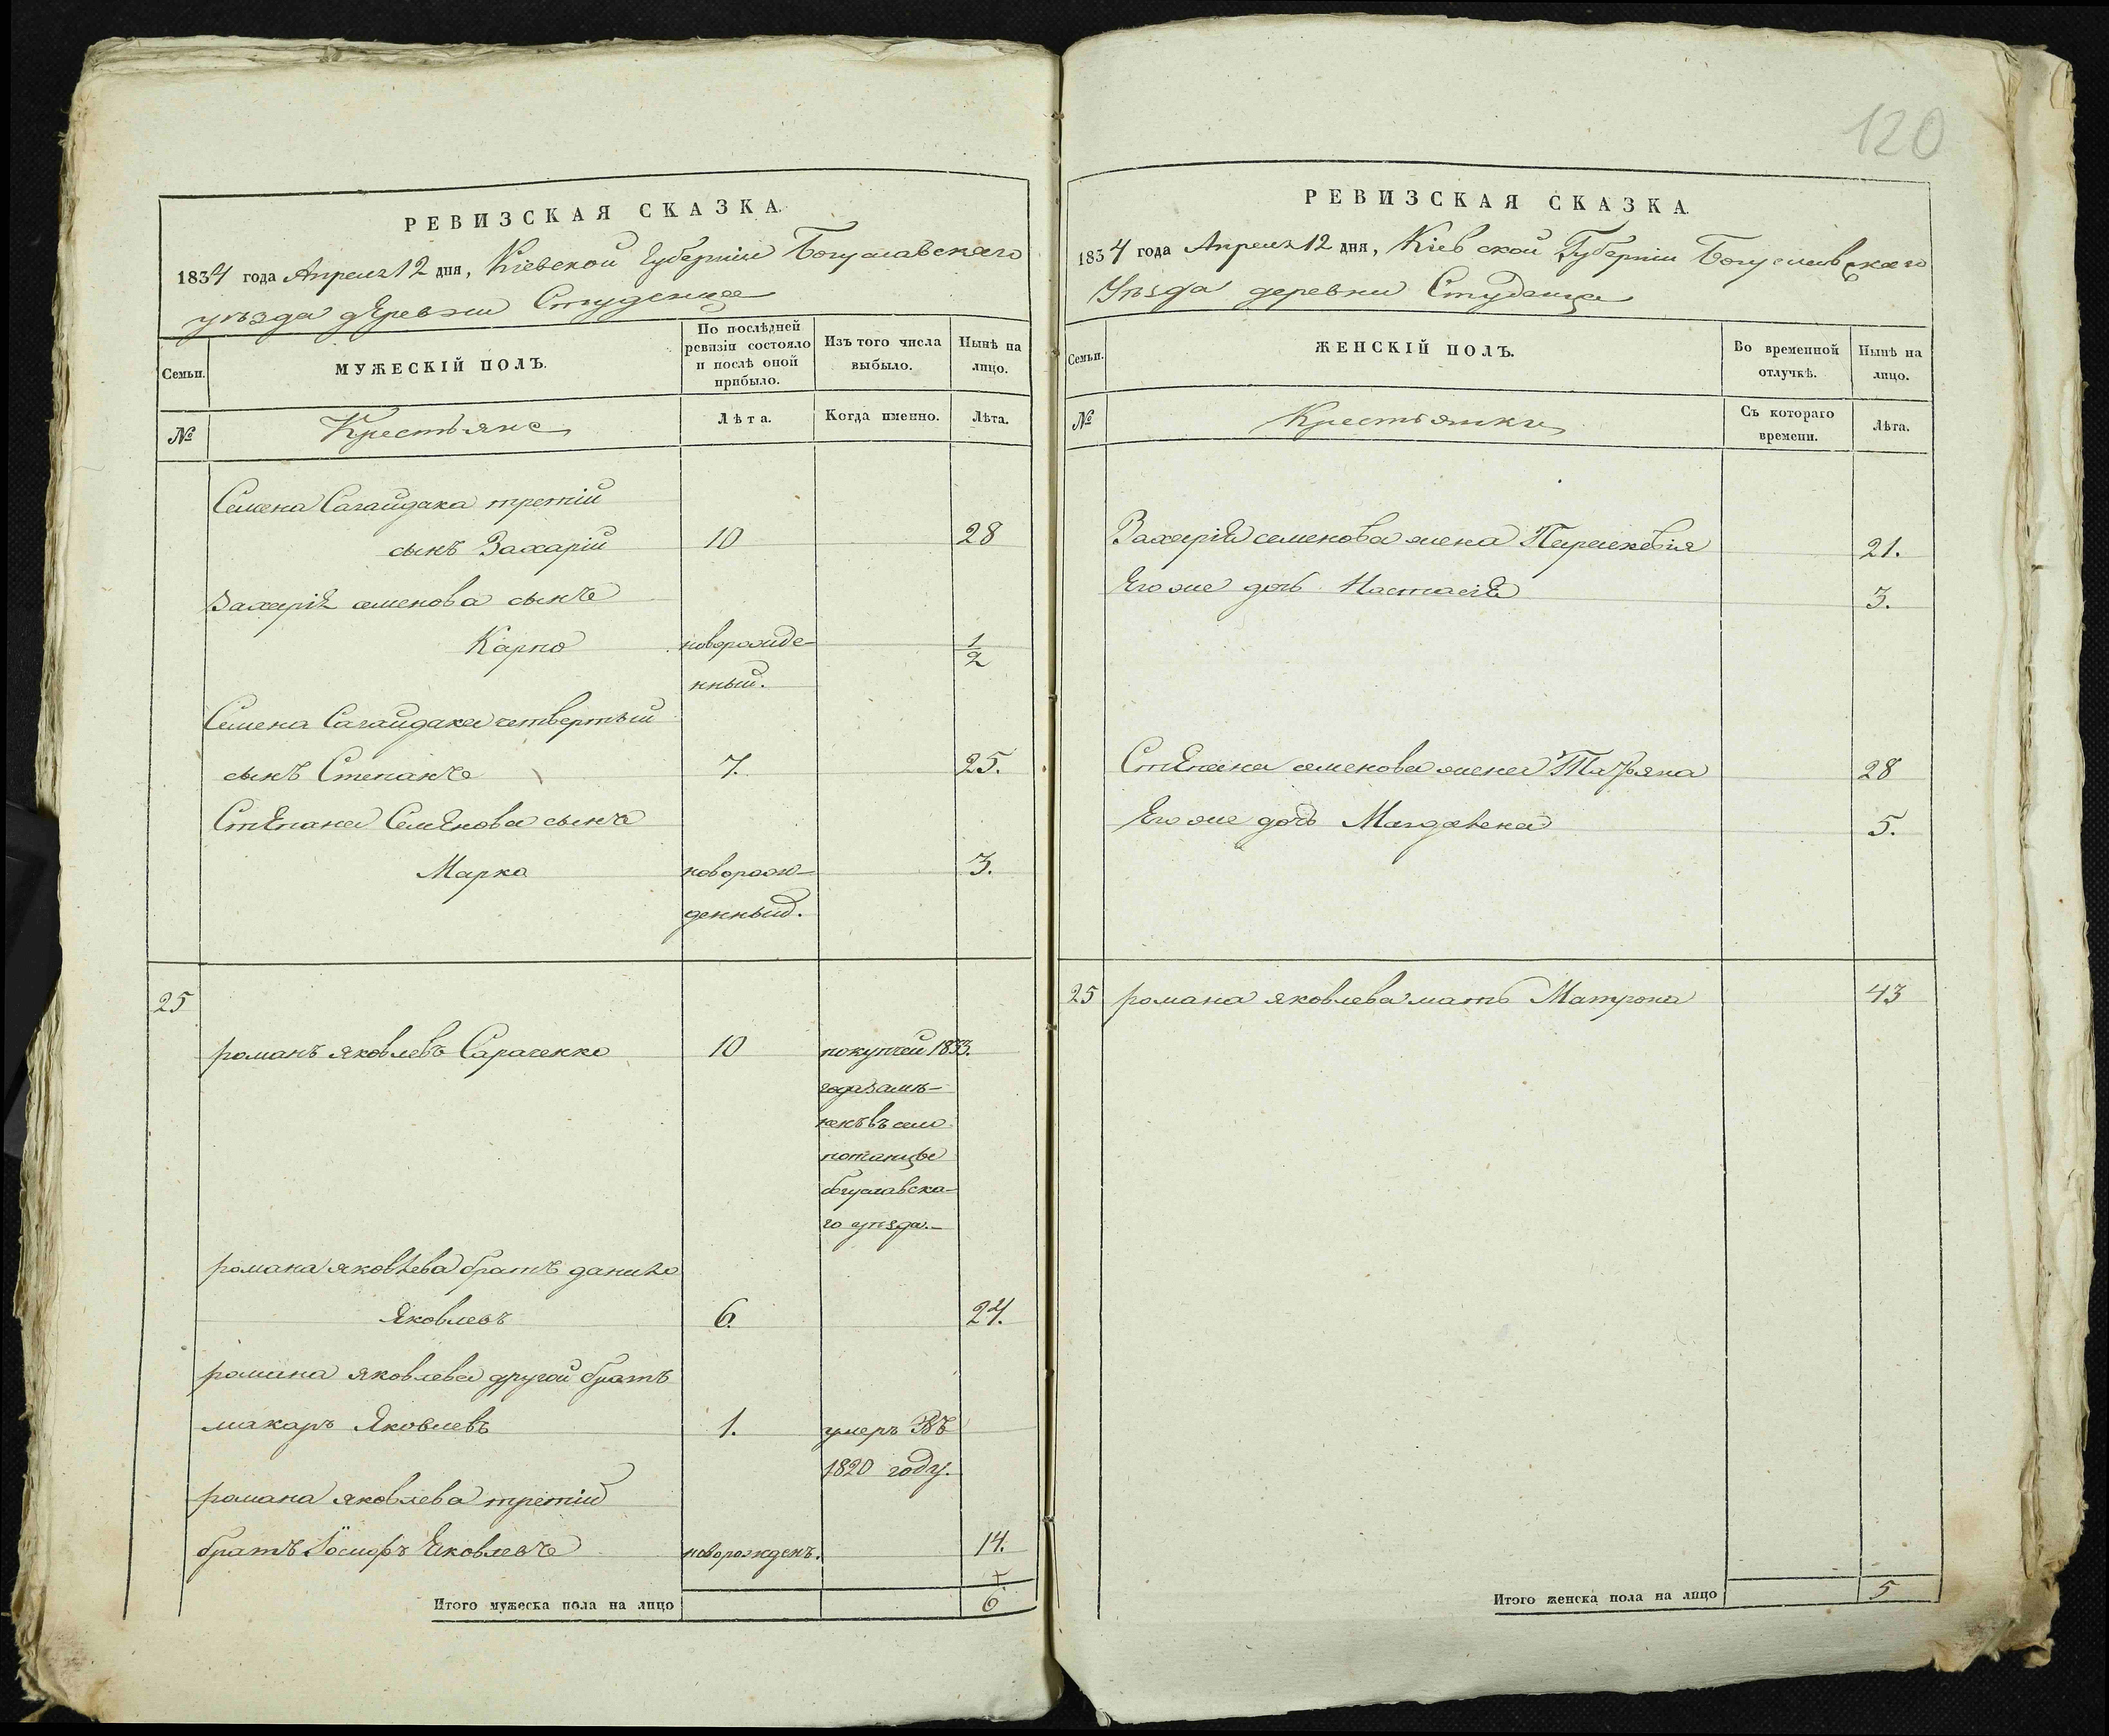 РЕВИЗСКАЯ СКАЗКА.
1834 года Апреля 12 дня, Кіевской Губерніи Богуславского
уѣзда деревни Студенца
Семьи.
МУЖЕСКІЙ ПОЛЪ.
По послѣдней ревизіи состояло и послѣ оной прибыло.
Изъ того числа выбыло.
Нынѣ на лицо.
№
Крестьяне
Лѣта.
Когда именно.
Лѣта.
Семена Сагайдака третій
сынъ Захарій 10 28
Захарія семенова сынъ
Карпо новорожде- 1/2
нный.
Семена Сагайдака четвертый
сынъ Степанъ 7. 25.
Степана Семенова сынъ
Марко новорож- 3.
денный.
25
романъ яковлевъ Сараченко 10 покупчей 1833.
года замѣ-
ненъ въ село
потапцы
богуславска-
го уѣзда.-
романа яковлева братъ данило
Яковлевъ 6. 24.
романа яковлева другой братъ
макаръ Яковлевъ 1. умеръ Въ
1820 году.
романа яковлева третій
братъ Іосифъ Яковлевъ новорожденъ. 14.
Итого мужеска пола на лицо 6
120
РЕВИЗСКАЯ СКАЗКА.
1834 года Апреля 12 дня, Кіевской Губерніи Богуславского
Уѣзда деревни Студенца
Семьи.
ЖЕНСКІЙ ПОЛЪ.
Во временной отлучкѣ.
Нынѣ на лицо.
№
Крестьянки
Съ котораго времени.
Лѣта.
Захарія семенова жена Парасковія 21.
Его же дочь Настасія 3.
Степана семенова жена Татьяна 28
Его же дочь Магдалена 5.
25 романа яковлева мать Матрона 43
Итого женска пола на лицо 5